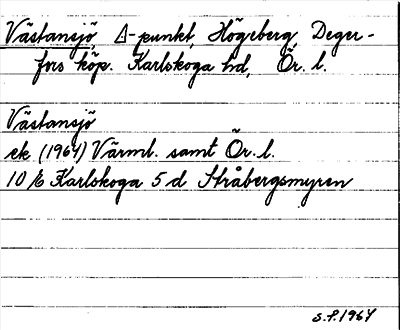 Västansjö, Δ-punkt, Högeberg, Deger-
fors köp. Karlskoga hd, Ör. l.
Västansjö
ek (1964) Värml. samt Ör. l.
10 E Karlskoga 5 d Stråbergsmyren
S.P. 1964